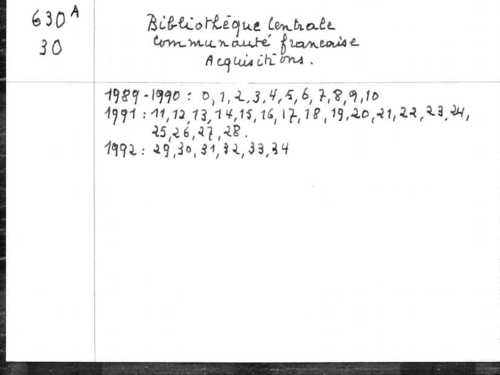 630 A
30
Bibliothèque Centrale
Communauté francaise
Acquisitions.
1989-1990 : 0, 1, 2, 3, 4, 5, 6, 7, 8, 9, 10
1991 : 11, 12, 13, 14, 15, 16, 17, 18, 19, 20, 21, 22, 23, 24,
25, 26, 27, 28.
1992 : 29, 30, 31, 32, 33, 34